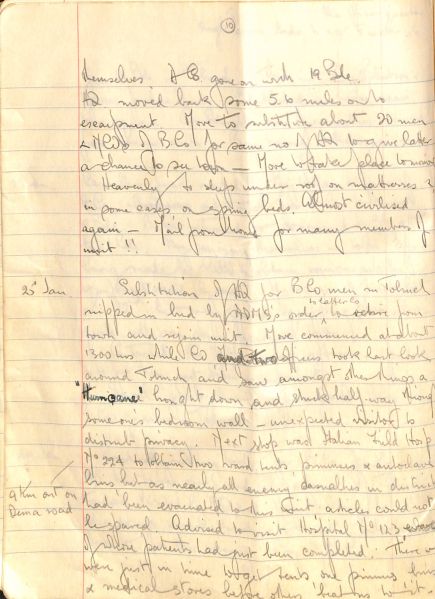 10
themselves. A Co. gone on with 19 Bde.
HQ moved back some 5.6 miles on to
escarpment. Move to substitute about 20 men
& NCOs of B Co for same no of HQ to give latter
a chance to see town — Move to take place tomorrow
Heavenly to sleep under roof on mattresses &
in some cases on spring beds. Almost civilised
again — Mail from home for many members of
unit !!
25 Jan. Substitution of HQ for B Co men in Tobruk
nipped in bud by ADMS's order to latter Co to from
town and rejoin unit. Move commenced at about
1300 hrs while CO and two officers took last look
around Tobruk and saw amongst other things a
"Hurricane" brought down and stuck half-way through
someone's bedroom wall — unexpected visitor to
disturb privacy. Next stop was Italian Field Hosp
No 274 to obtain two ward tents primuses & autoclave
but as nearly all enemy casualties in district
had been evacuated to this unit articles could not
9 Km out on
Derna road
be spared. Advised to visit Hospital No 123
of whose patients had just been completed. There
were just in time to get tents one primus
& medical stores before others beat us to it.